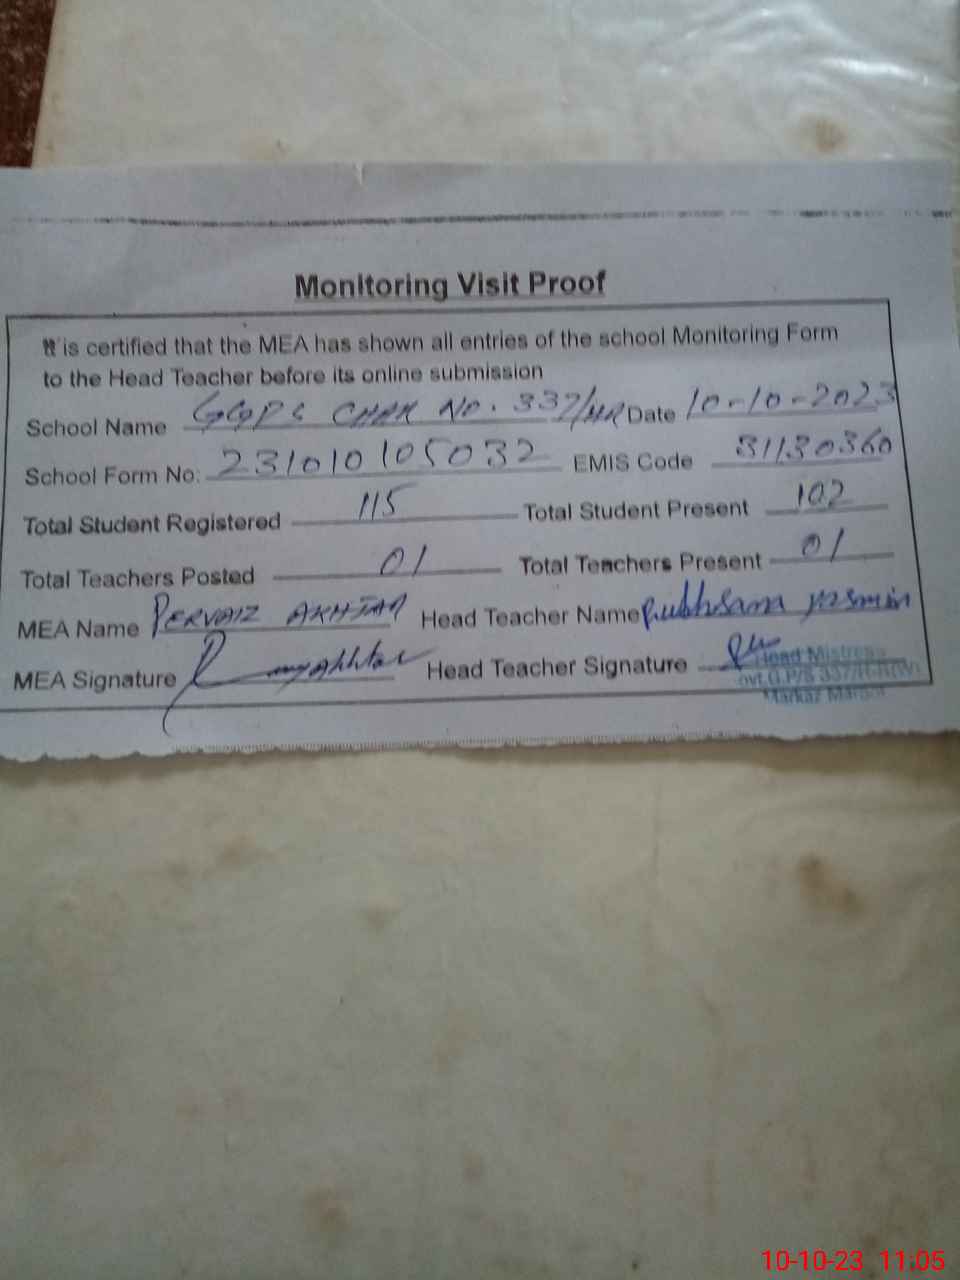 Monitoring Visit Proof
It is certified that the MEA has shown all entries of the school Monitoring Form
to the Head Teacher before its online submission
School Name GGPS CHAK No. 337/HR Date 10-10-2023
School Form No: 231010105032 EMIS Code 31130360
Total Student Registered 115 Total Student Present 102
Total Teachers Posted 01 Total Teachers Present 01
MEA Name PERVAIZ AKHTAR Head Teacher Name Rukhsana Yasmin
MEA Signature Head Teacher Signature
Head Mistress
Govt.G.P/S 337/H-R
Markaz Marot
10-10-23 11:05